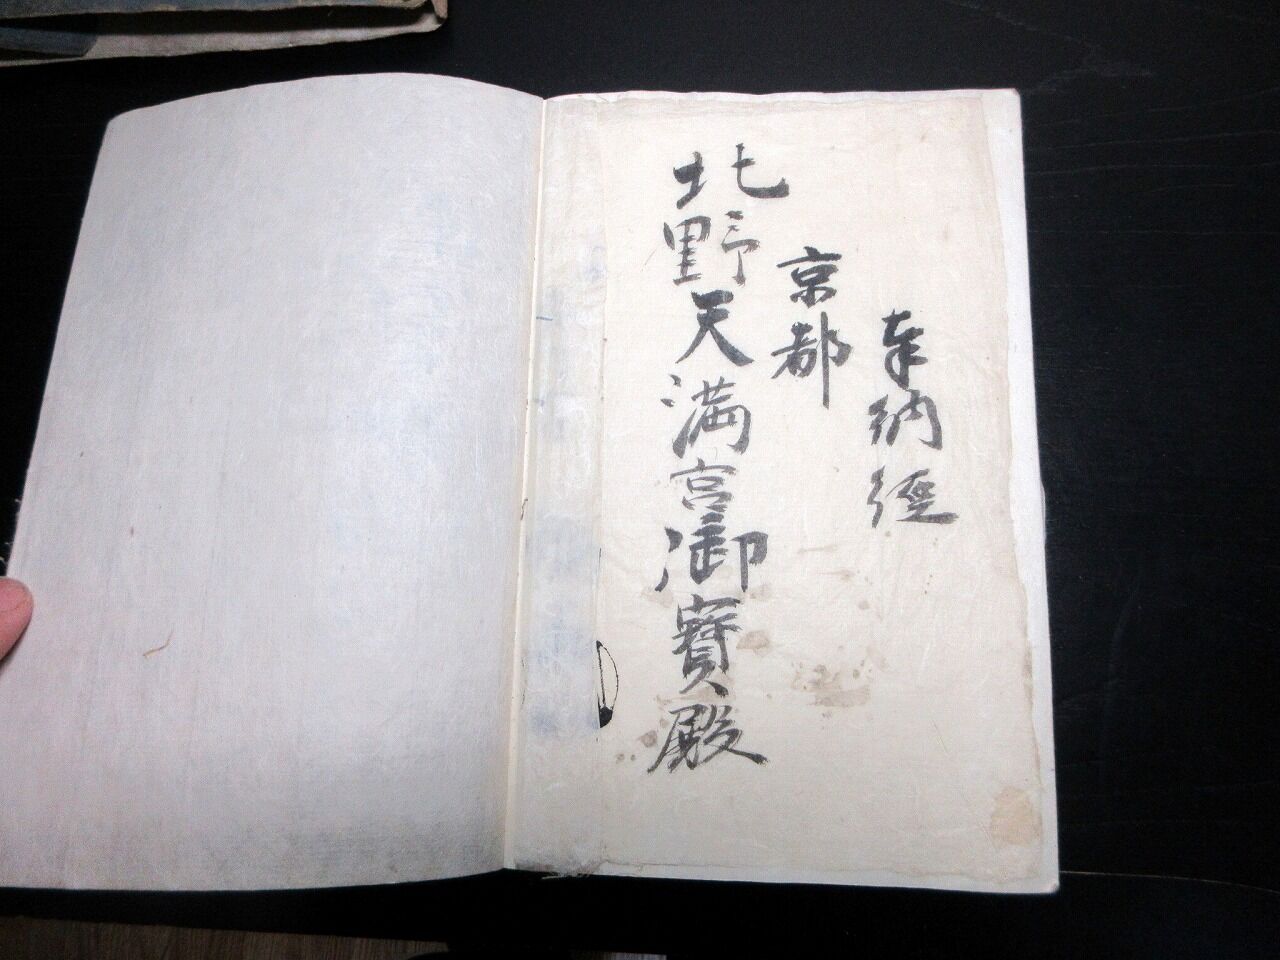 奉納経
京都
北野天満宮御寳殿